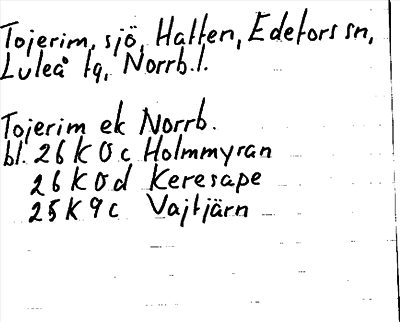 Tojerim, sjö, Hatten, Edefors sn,
Luleå tg, Norrb.l.
Tojerim ek Norrb.
bl. 26 K 0 c Holmmyran
26 K 0 d Keresape
25 K 9 c Vajtjärn